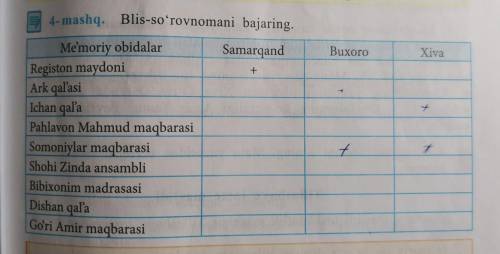 4-mashq. Blis-so‘rovnomani bajaring.
Me’moriy obidalar Samarqand Buxoro Xiva
Registon maydoni +
Ark qal’asi +
Ichan qal’a +
Pahlavon Mahmud maqbarasi
Somoniylar maqbarasi + +
Shohi Zinda ansambli
Bibixonim madrasasi
Dishan qal’a
Go‘ri Amir maqbarasi